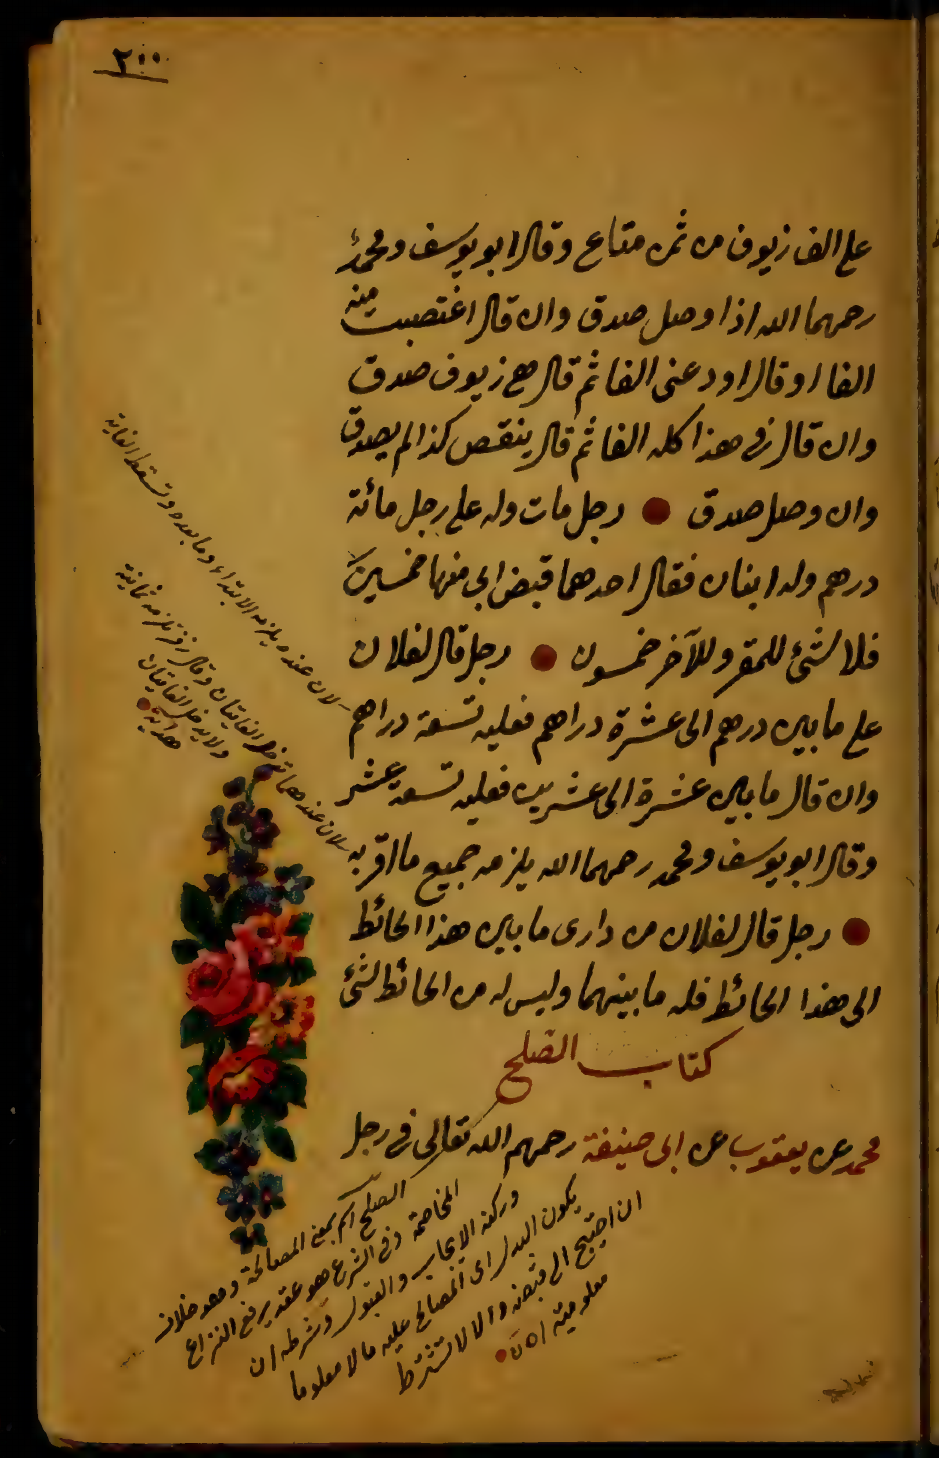 ٢٠٠
على الف زيوف من ثمن متاع وقال ابو يوسف ومحمد
رحمهما الله اذا وصل صدق وان قال اغتصبت منه
الفا او قال اودعنى الفا ثم قال هى زيوف صدق
وان قال فى هذا كله الفا ثم قال ينقص كذا لم يصدق
وان وصل صدق ● رجل مات وله على رجل مائة
درهم وله ابنان فقال احدهما قبض ابى منها خمسين
فلا شئ للمقر وللآخر خمسون ● رجل قال لفلان
على ما بين درهم الى عشرة دراهم فعليه تسعة دراهم
وان قال ما بين عشرة الى عشرين فعليه تسعة عشر
وقال ابو يوسف ومحمد رحمهما الله يلزمه جميع ما اقر به
● رجل قال لفلان من دارى ما بين هذا الحائط
الى هذا الحائط فله ما بينهما وليس له من الحائط شئ
كتاب الصلح
محمد عن يعقوب عن ابى حنيفة رحمهم الله تعالى فى رجل
لان عنده يلزمه الابتداء وما بعده وتسقط الغاية
لان عندهما تدخل الغايتان وقال زفر يلزمه ثمانية
ولا يدخل الغايتان
هداية
الصلح اسم بمعنى المصالحة وهو خلاف
المخاصمة وفى الشرع هو عقد يرفع النزاع
وركنه الايجاب والقبول وشرطه ان
يكون البدل اى المصالح عليه مالا معلوما
ان احتيج الى قبضه والا لا تشترط
معلوميته اه